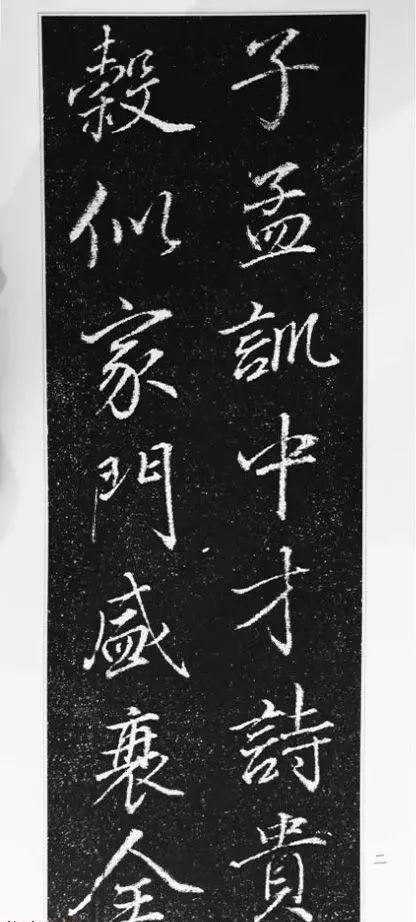 子孟訓中才詩貴
穀似家門盛衰全
二